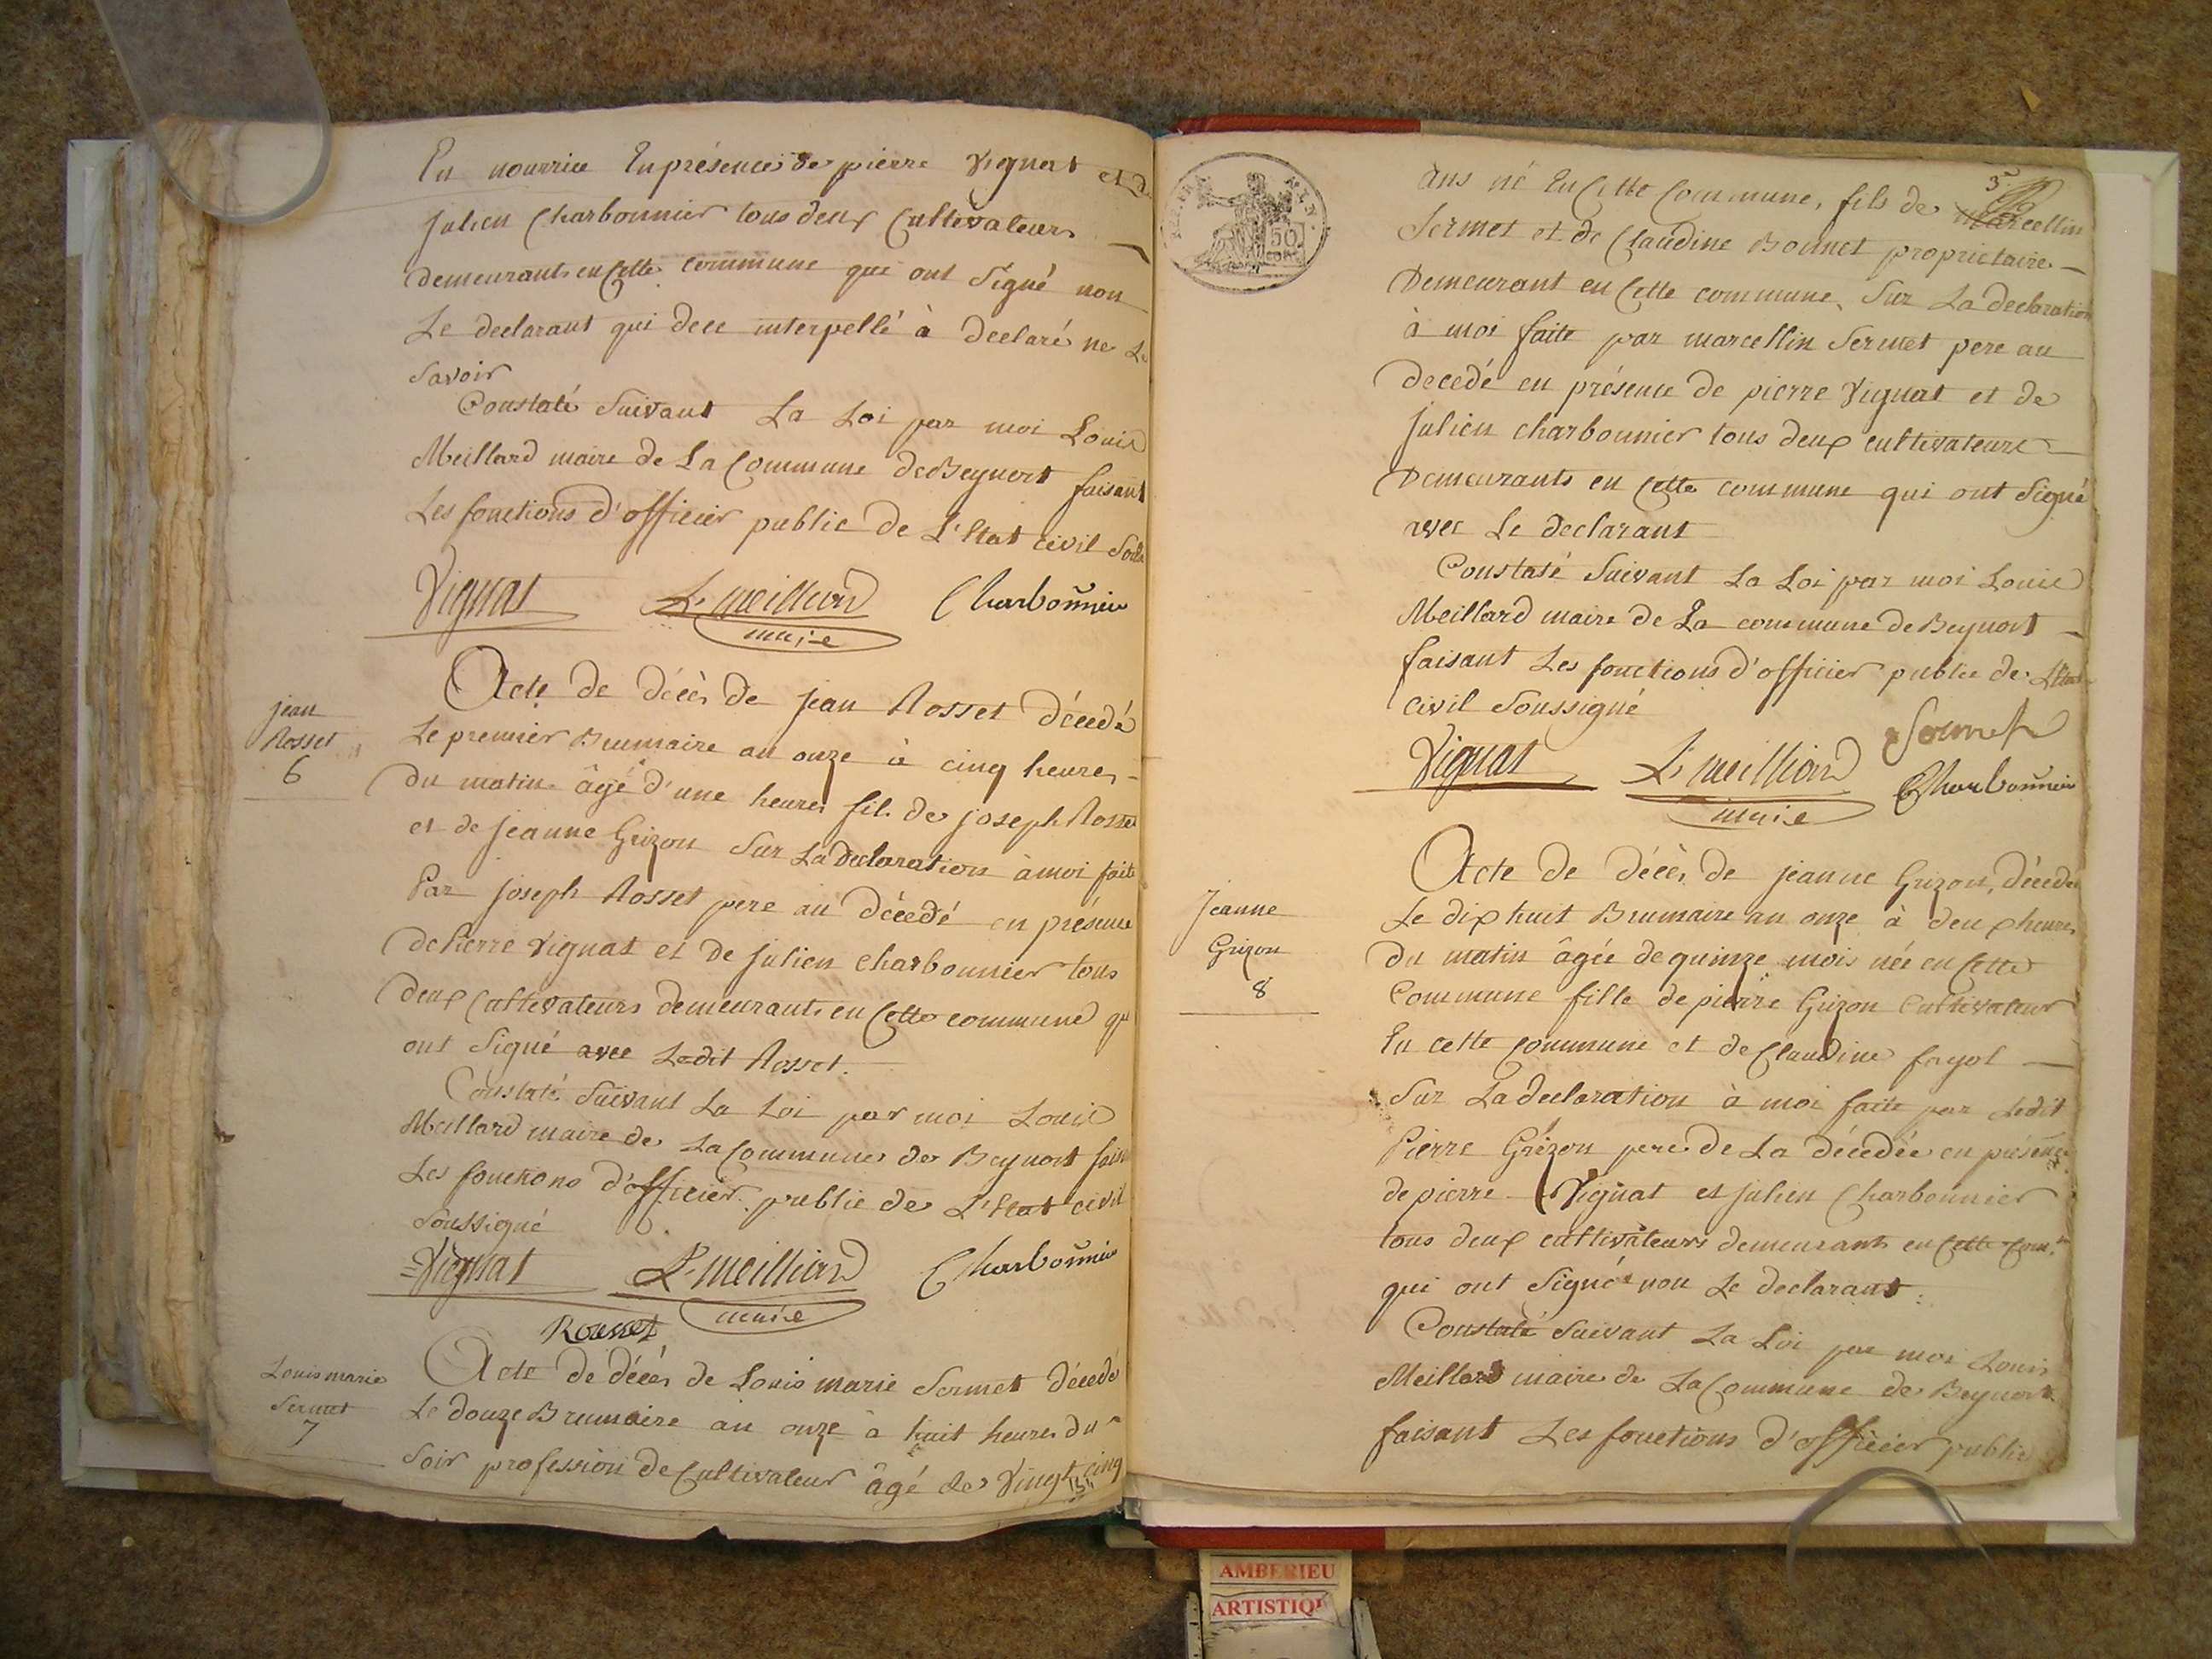 En nourrice En présence de pierre Vignat et de
julien Charbonnier tous deux Cultivateurs
demeurants en Cette commune qui ont Signé non
Le declarant qui dece interpellé à declaré ne Le
Savoir
Constaté Suivant La Loi par moi Louis
Meillard maire de La Commune de Beynost faisant
Les fonctions d'officier public de L'Etat civil
Vignat L. Meilliard Charbonnier
maire
jean
Rosset
6
Acte de décès de jean Rosset décedé
Le premier Brumaire an onze à cinq heures
du matin âgé d'une heure, fils de joseph Rosset
et de jeanne Grizon Sur La declaration à moi faite
Par joseph Rosset pere au décedé en présence
de Pierre Vignat et de julien Charbonnier tous
deux Cultivateurs demeurants en Cette commune qui
ont Signé avec Ledit Rosset.
Constaté Suivant La Loi par moi Louis
Meillard maire de La Commune de Beynost
Les fonctions d'officier public de L'Etat civil
Soussigné
Vignat L. Meilliard Charbonnier
maire
Rosset
Louis marie
Sermet
7
Acte de décès de Louis marie Sermet décedé
Le douze Brumaire an onze à huit heures du
Soir profession de Cultivateur âgé de Vingt cinq
3
ans né En Cette Commune, fils de Marcellin
Sermet et de Claudine Bonnet proprietaire
Demeurant en Cette commune, Sur La declaration
à moi faite par marcellin Sermet pere au
decedé en présence de pierre Vignat et de
julien charbonnier tous deux cultivateurs
Demeurants en Cette commune qui ont Signé
avec Le declarant
Constaté Suivant La Loi par moi Louis
Meillard maire de La commune de Beynost
faisant Les fonctions d'officier public de L'Etat
civil Soussigné
Sermet
Vignat L. Meilliard Charbonnier
maire
Jeanne
Grizon
8
Acte de décès de jeanne Grizon, décedée
Le dix huit Brumaire an onze à deux heures
du matin âgée de quinze mois née en Cette
Commune fille de pierre Grizon Cultivateur
En cette commune et de Claudine fayol
Sur La declaration à moi faite par Ledit
Pierre Grizon pere de La décedée en présence
de pierre Vignat et julien Charbonnier
tous deux cultivateurs demeurants en Cette Com.ne
qui ont Signé non Le declarant
Constaté Suivant La Loi par moi Louis
Meillard maire de La Commune de Beynost
faisant Les fonctions d'officier public
50
AMBERIEU
ARTISTIQU